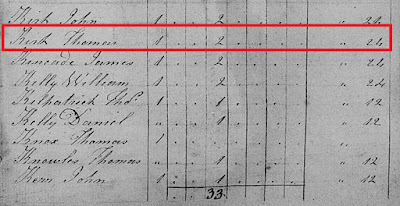 Kirk John 1 . . 2 . . . . . " 24
Kirk Thomas 1 . . 2 . . . . . " 24
Kincade James 1 . . 2 . . . . . " 24
Kelly William 1 . . 2 . . . . . " 24
Kilpatrick Tho.s 1 . . 1 . . . . . " 12
Kelly Daniel " . . 1 . . . . . " 12
Knox Thomas 1 . . . . . . . "
Knowles Thomas " . . 1 . . . . . " 12
Kerr John 1 . . 1 . . . . . " 12
33